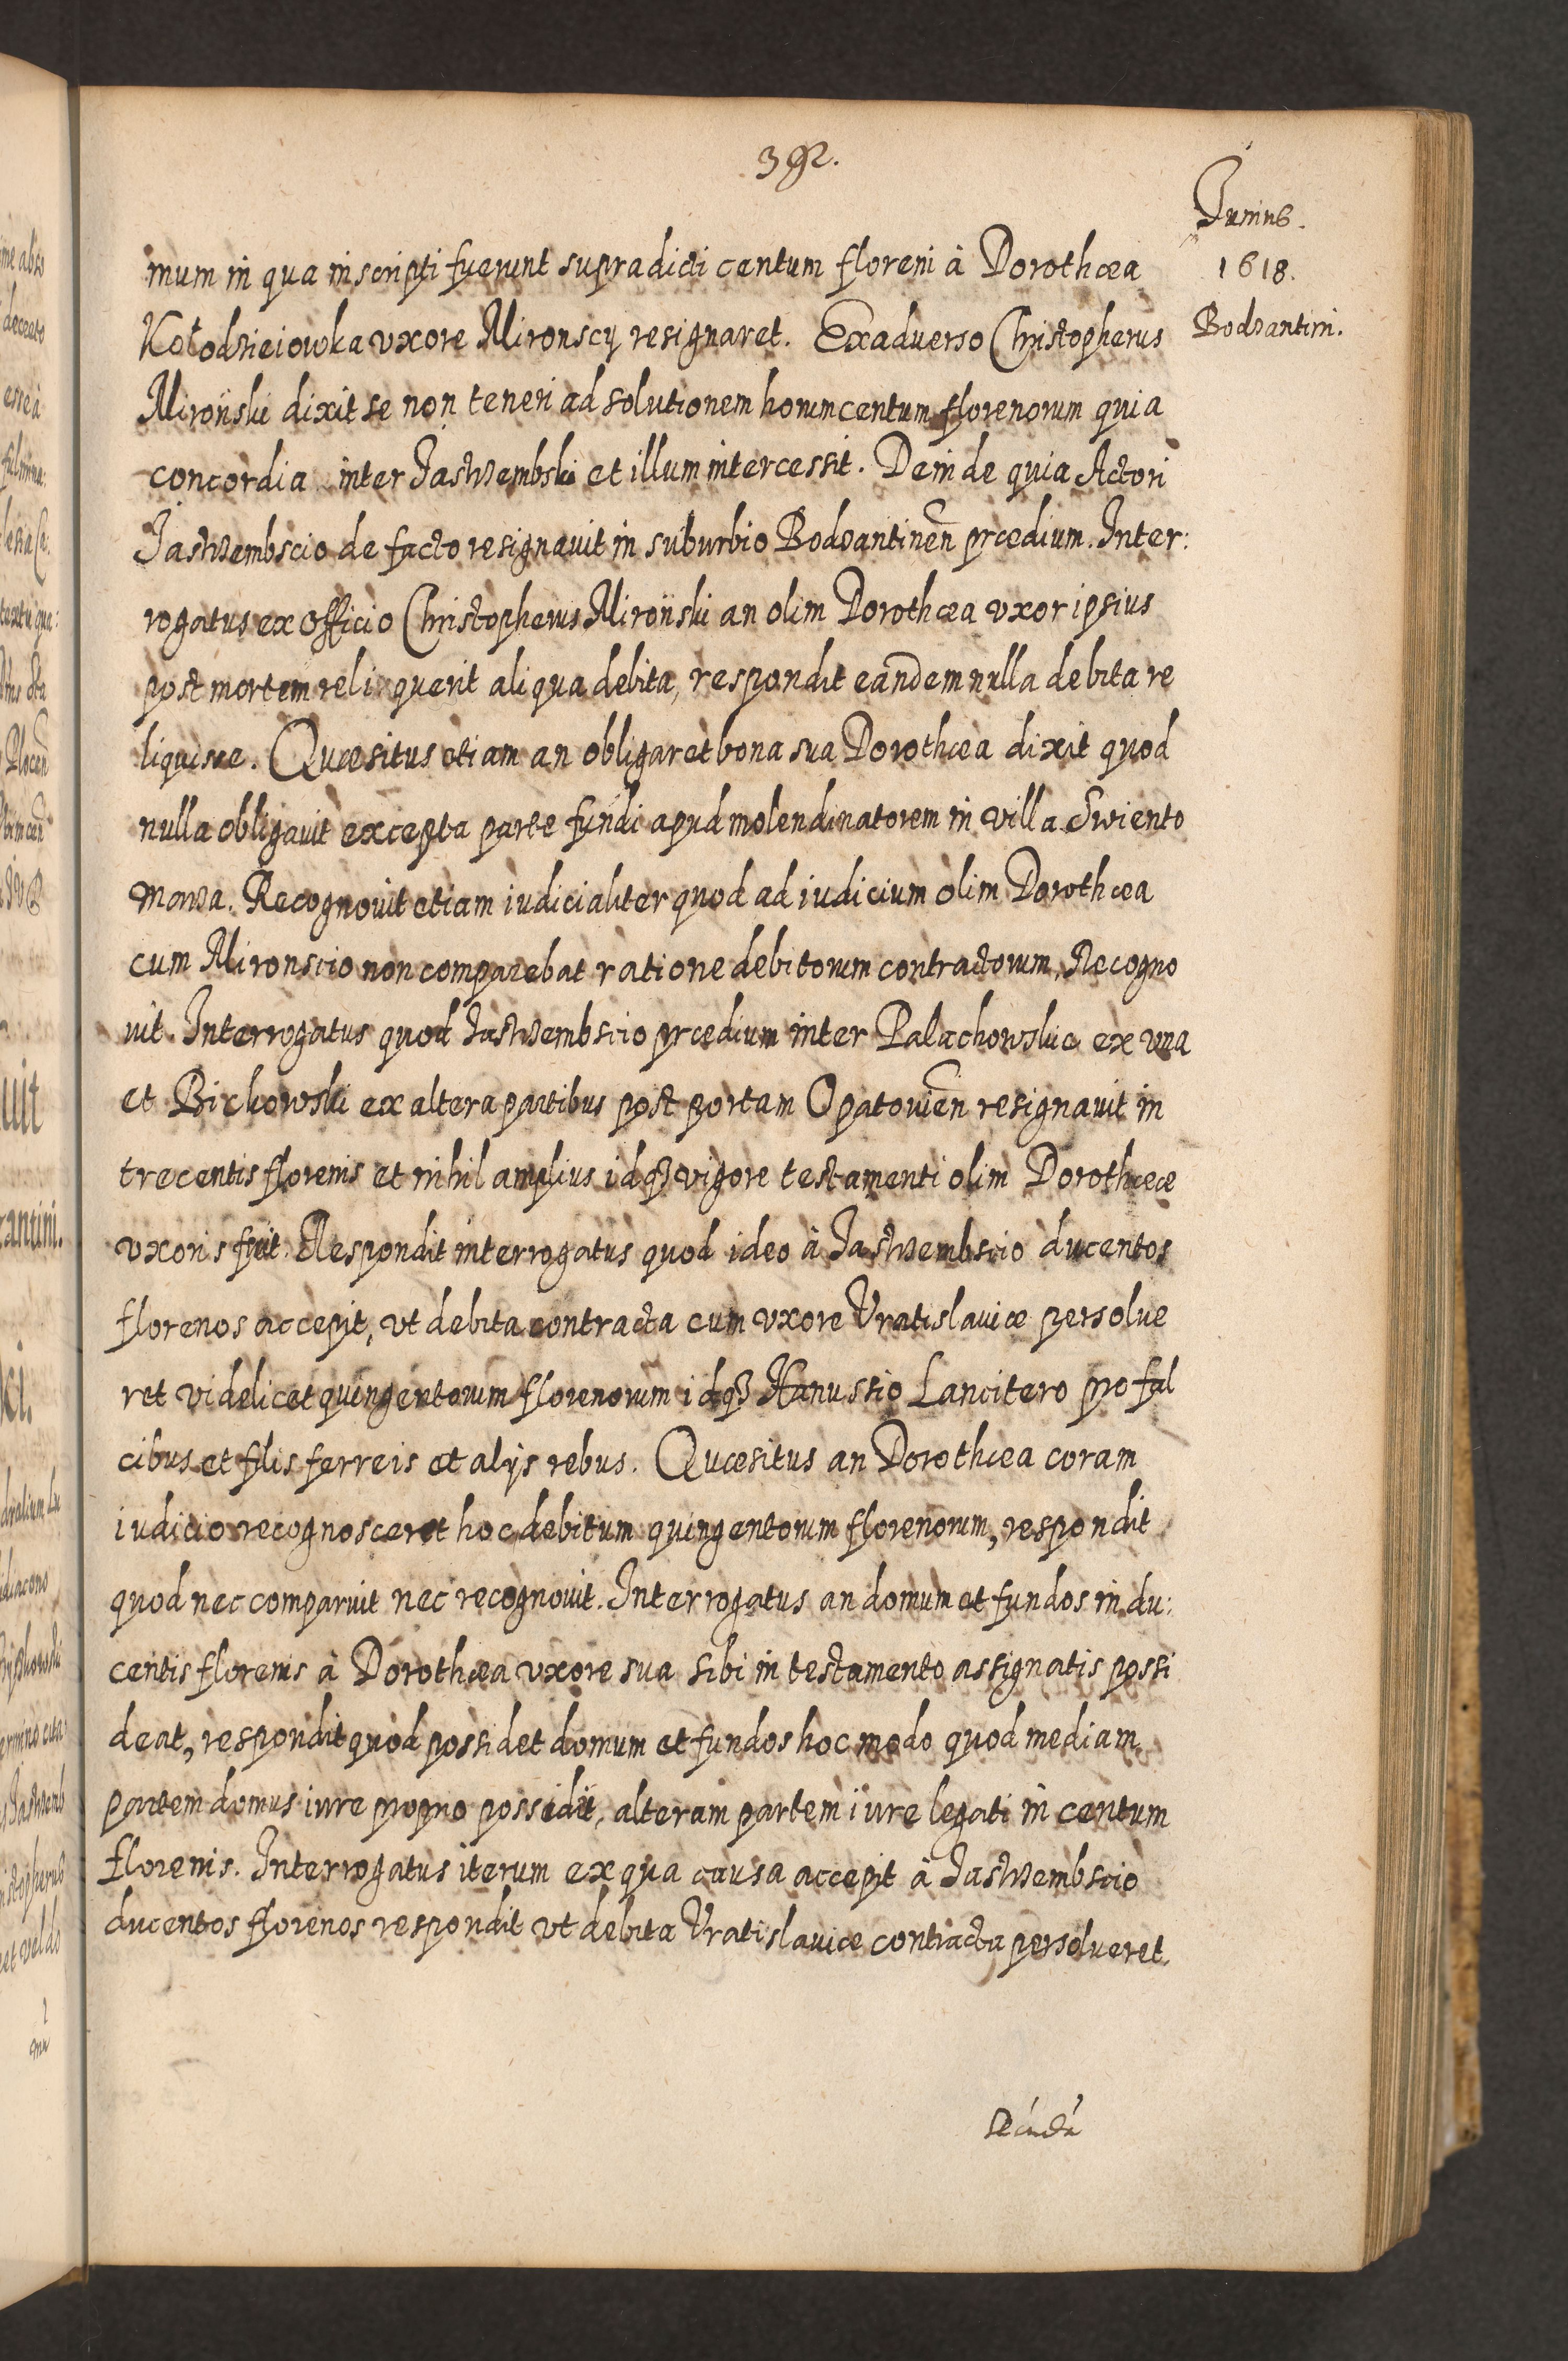 392.
Junius.
1618.
Bodzantini.
mum in qua inscripti fuerunt supradicti centum floreni à Dorothæa
Kołodzieiowka vxore Mironscy resignaret. Exaduerso Christopherus
Miroński dixit se non teneri ad solutionem horum centum florenorum quia
concordia inter Jastrzembski et illum intercessit. Deinde quia Actori
Jastrzembscio de facto resignauit in suburbio Bodzantinen prædium. Inter:
rogatus ex officio Christopherus Miroński an olim Dorothæa vxor ipsius
post mortem reliquerit aliqua debita, respondit eandem nulla debita re
liquisse. Quæsitus etiam an obligaret bona sua Dorothæa dixit quod
nulla obligauit excepta parte fundi apud molendinatorem in villa Swiento
marza. Recognouit etiam iudicialiter quod ad iudicium olim Dorothæa
cum Mironscio non comparebat ratione debitorum contractorum, Recogno
uit. Interrogatus quod Jastrzembscio prædium inter Palachowskie ex vna
et Bickowski ex altera partibus post portam Opatouien resignauit in
trecentis florenis et nihil amplius idq3 vigore testamenti olim Dorothææ
vxoris fuit. Respondit interrogatus quod ideo à Jastrzembscio ducentos
florenos accepit, vt debita contracta cum vxore Vratislauiæ persolue
ret videlicet quingentorum florenorum idq3 Hanussio Lancitero pro fal
cibus et filis ferreis et alijs rebus. Quæsitus an Dorothæa coram
iudicio recognosceret hoc debitum quingentorum florenorum, respondit
quod nec comparuit nec recognouit. Interrogatus an domum et fundos in du:
centis florenis à Dorothæa vxore sua sibi in testamento assignatis possi
deat, respondit quod possidet domum et fundos hoc modo quod mediam
partem domus iure proprio possidit, alteram partem iure legati in centum
florenis. Interrogatus iterum ex qua causa accepit à Jastrzembscio
ducentos florenos respondit vt debita Vratislauiæ contracta persolueret.